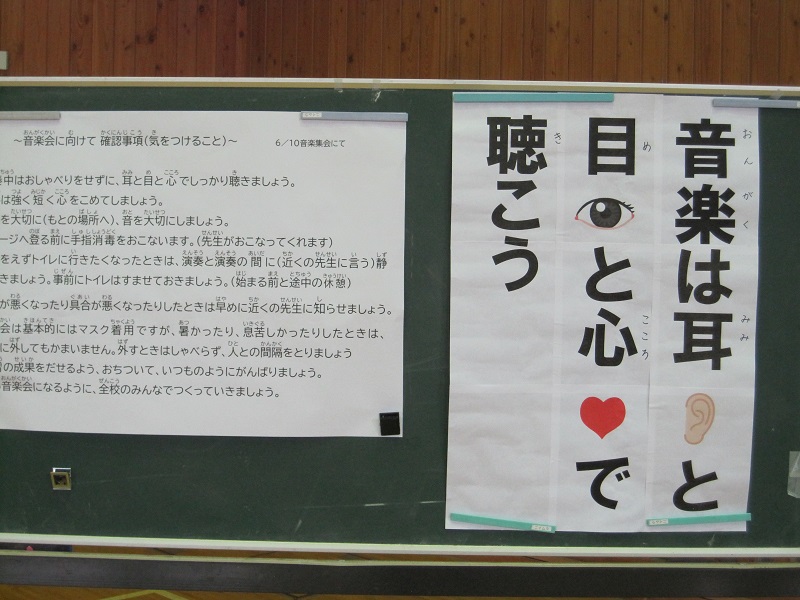 ～音楽会に向けて 確認事項(気をつけること)～ 6／10音楽集会にて
中はおしゃべりをせずに、耳と目と心でしっかり聴きましょう。
は強く短く心をこめてしましょう。
を大切に(もとの場所へ)、音を大切にしましょう。
ージへ登る前に手指消毒をおこないます。(先生がおこなってくれます)
をえずトイレに行きたくなったときは、演奏と演奏の間に(近くの先生に言う)静
きましょう。事前にトイレはすませておきましょう。(始まる前と途中の休憩)
が悪くなったり具合が悪くなったりしたときは早めに近くの先生に知らせましょう。
会は基本的にはマスク着用ですが、暑かったり、息苦しかったりしたときは、
に外してもかまいません。外すときはしゃべらず、人との間隔をとりましょう
の成果をだせるよう、おちついて、いつものようにがんばりましょう。
音楽会になるように、全校のみんなでつくっていきましょう。
音楽は耳と
目と心で
聴こう